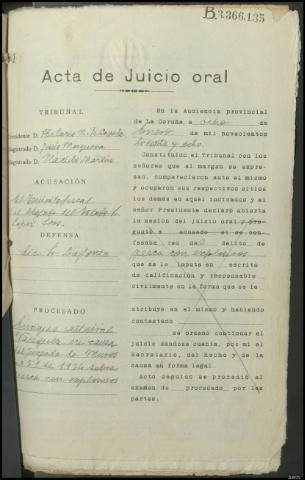 B.2.366.135
Acta de Juicio oral
TRIBUNAL
Presidente D.
Magistrado D. Jesús
Magistrado D. Plácido Martín
ACUSACIÓN
del Estado
DEFENSA
PROCESADO
Enrique
Vázquez, en causa
del Juzgado de Muros
nº 51 de 1936 sobre
pesca con explosivos
En la Audiencia provincial
de La Coruña, a ocho de
Enero de mil novecientos
treinta y ocho.
Constituído el Tribunal con los
señores que al margen se expre-
san, comparecieron ante el mismo
y ocuparon sus respectivos sitios
los demás en aquél indicados y el
señor Presidente declaró abierta
la sesión del juicio oral, y pre-
guntó a acusado si se con-
fesaba reo del delito de
pesca con explosivos
que se le imputa en escrito
de calificación y responsable
civilmente en la forma que se le
atribuye en el mismo y habiendo
contestado
se ordenó continuar el
juicio dándose cuenta, por mí el
Secretario, del hecho y de la
causa en forma legal.
Acto seguido se procedió al
exámen de procesado por las
partes.